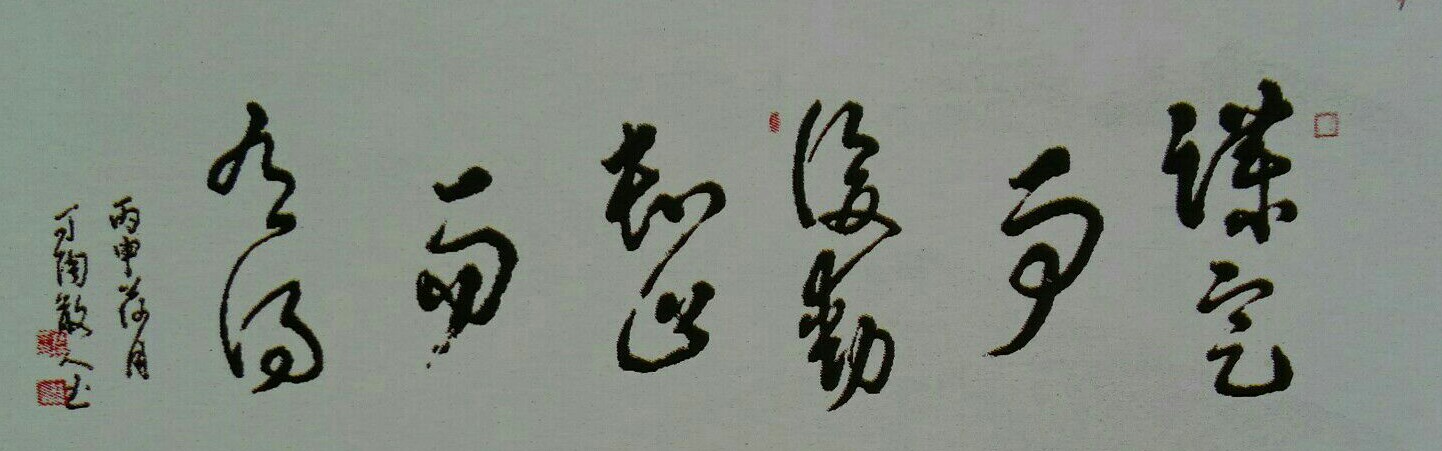 谋定
而
后動
知止
而
有得
丙申荷月
可陶散人书